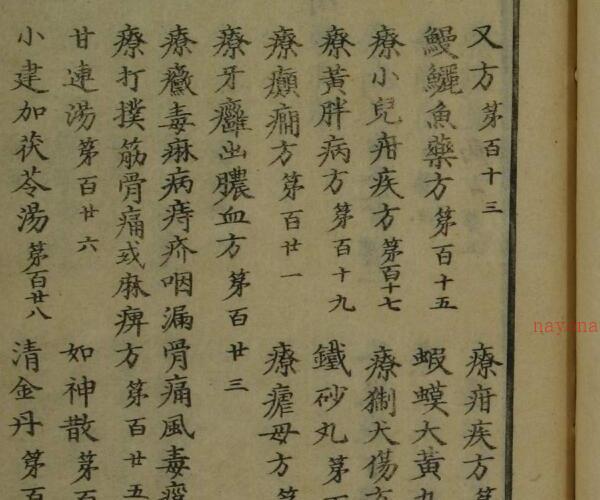 又方 第百十三
療疳疾方 第
鰻鱺魚藥方 第百十五
蝦蟆大黃丸
療小兒疳疾方 第百十七
療猘犬傷方
療黃胖病方 第百十九
鐵砂丸 第
療癲癇方 第百廿一
療瘧母方 第
療牙癰出膿血方 第百廿三
療黴毒痳病痔疥咽漏骨痛風毒
療打撲筋骨痛或麻痺方 第百廿五
甘連湯 第百廿六
如神散 第百
小建加茯苓湯 第百廿八
清金丹 第百
nayona